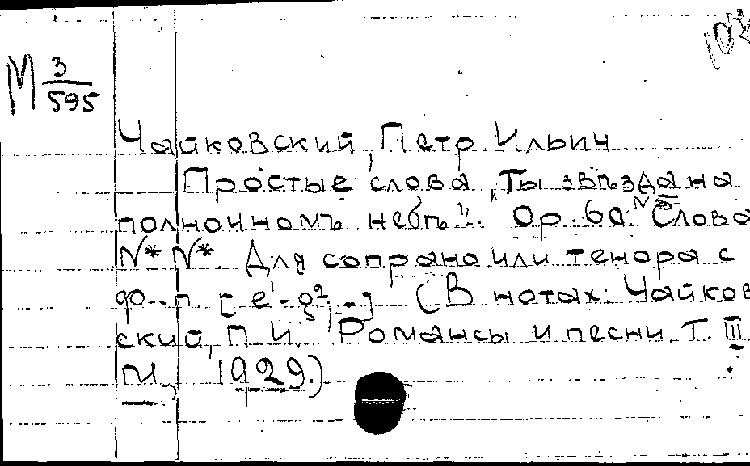 102
М 3/595
Чайковский, Петр Ильич
Простые слова „Ты звѣзда на
полночномъ небѣ". Op. 60. N 5 Слова
N* N* Для сопрано или тенора с
ф.-п. [e'-g²] (В нотах: Чайков
ский, П. И. Романсы и песни. Т. III
М., 1929.)